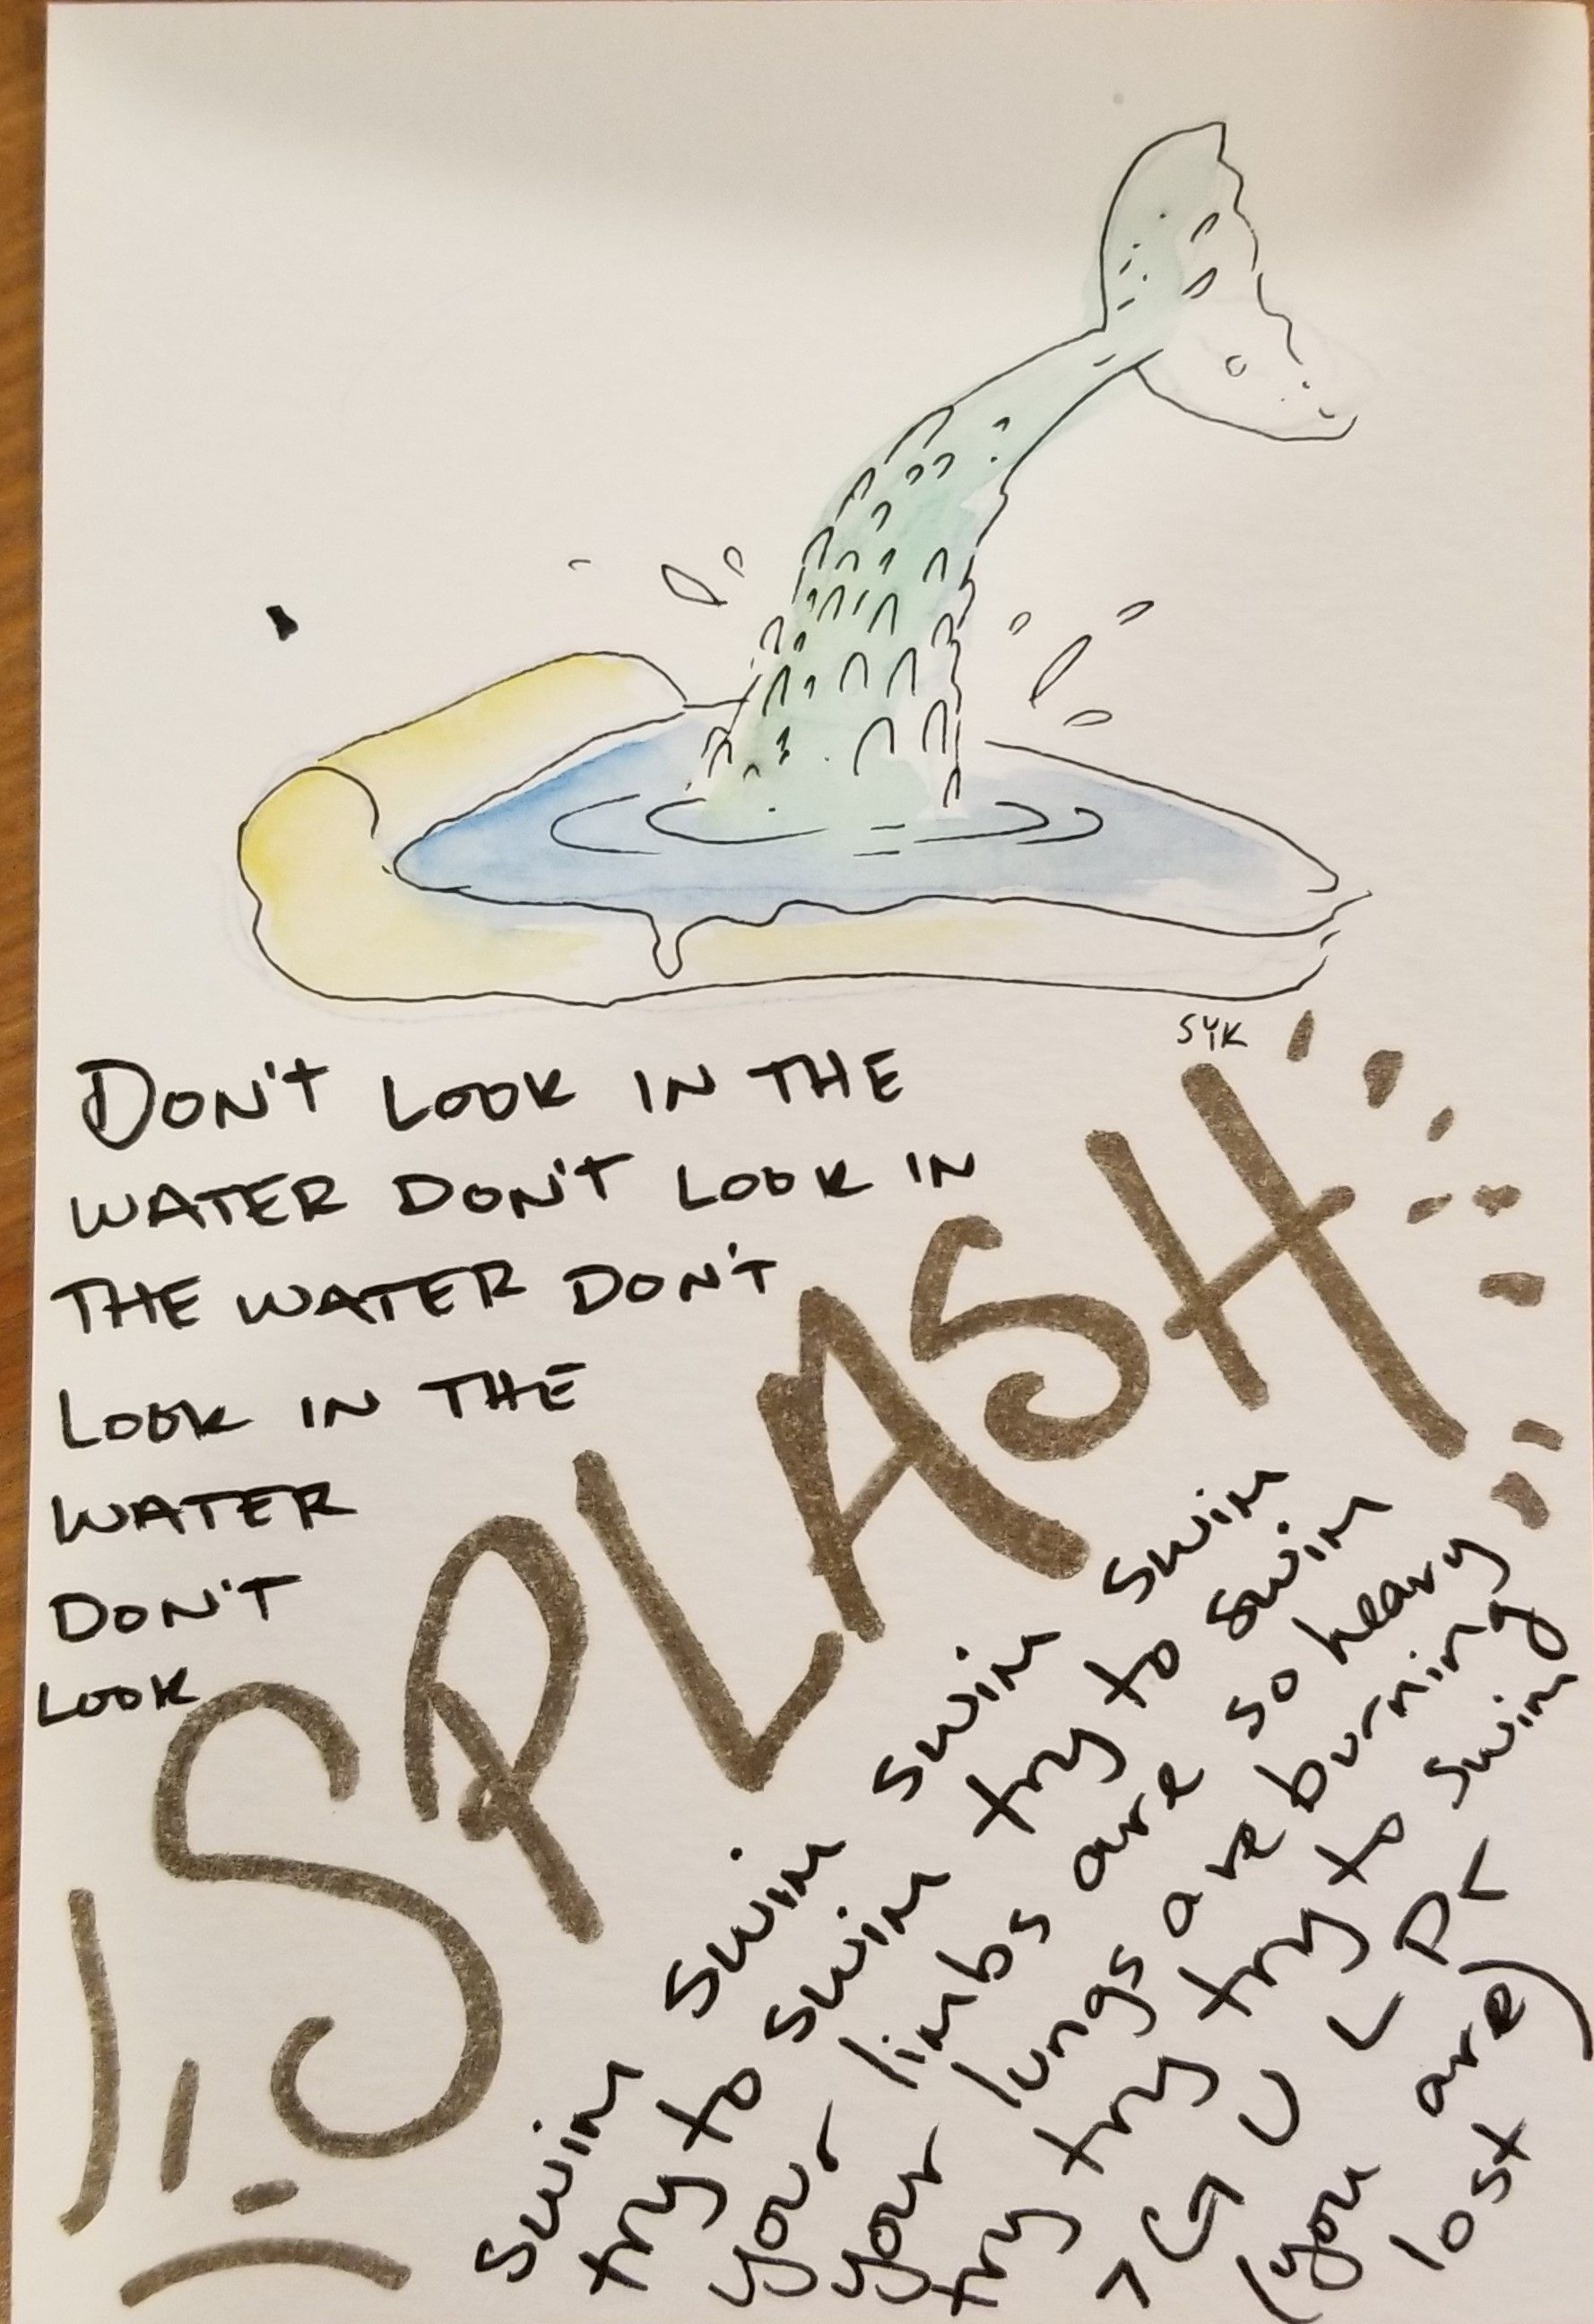 SYK
DON'T LOOK IN THE
WATER DON'T LOOK IN
THE WATER DON'T
LOOK IN THE
WATER
DON'T
LOOK
SPLASH
swim swim swim swim
try to swim try to swim
your limbs are so heavy
your lungs are burning
try try try to swim
>GULP<
(you are)
lost